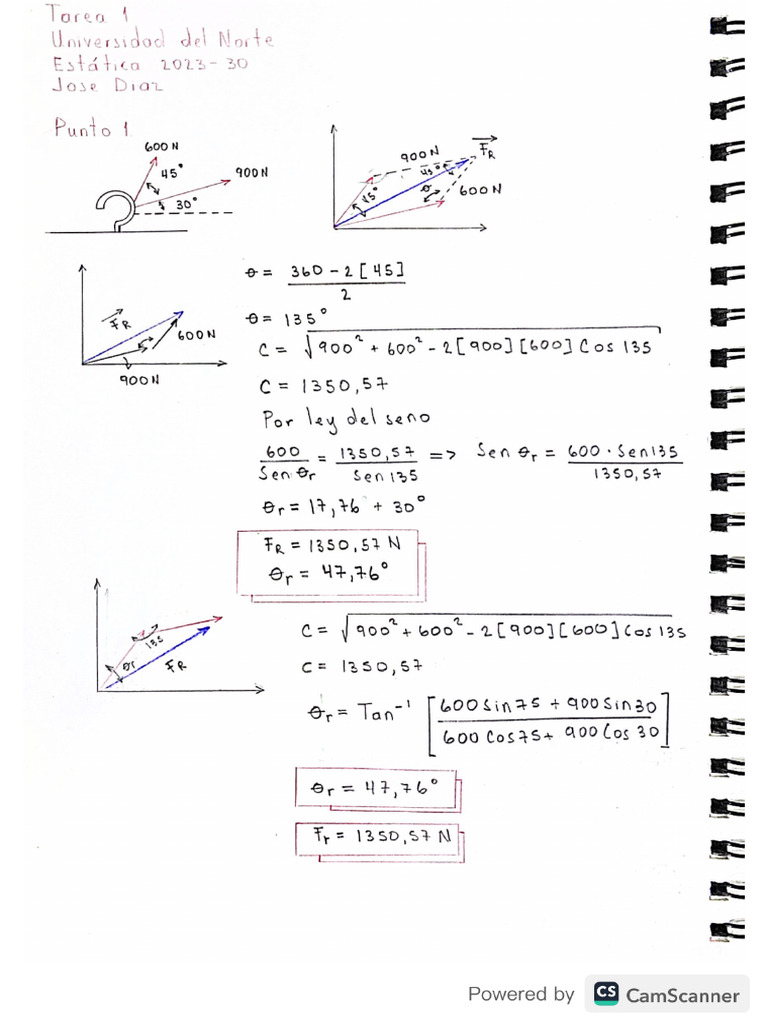 Tarea 1
Universidad del Norte
Estática 2023-30
Jose Diaz
Punto 1
600 N
45°
900 N
30°
900 N
F_R
45°
45°
θ
600 N
θ = (360 - 2[45])/2
θ = 135°
F_R
600 N
900 N
C = √(900² + 600² - 2[900][600] Cos 135)
C = 1350,57
Por ley del seno
600/Sen θr = 1350,57/Sen 135 => Sen θr = (600 · Sen 135)/1350,57
θr = 17,76 + 30°
F_R = 1350,57 N
θr = 47,76°
135
θr
F_R
C = √(900² + 600² - 2[900][600] Cos 135)
C = 1350,57
θr = Tan⁻¹ [(600 Sin 75 + 900 Sin 30)/(600 Cos 75 + 900 Cos 30)]
θr = 47,76°
Fr = 1350,57 N
Powered by CS CamScanner